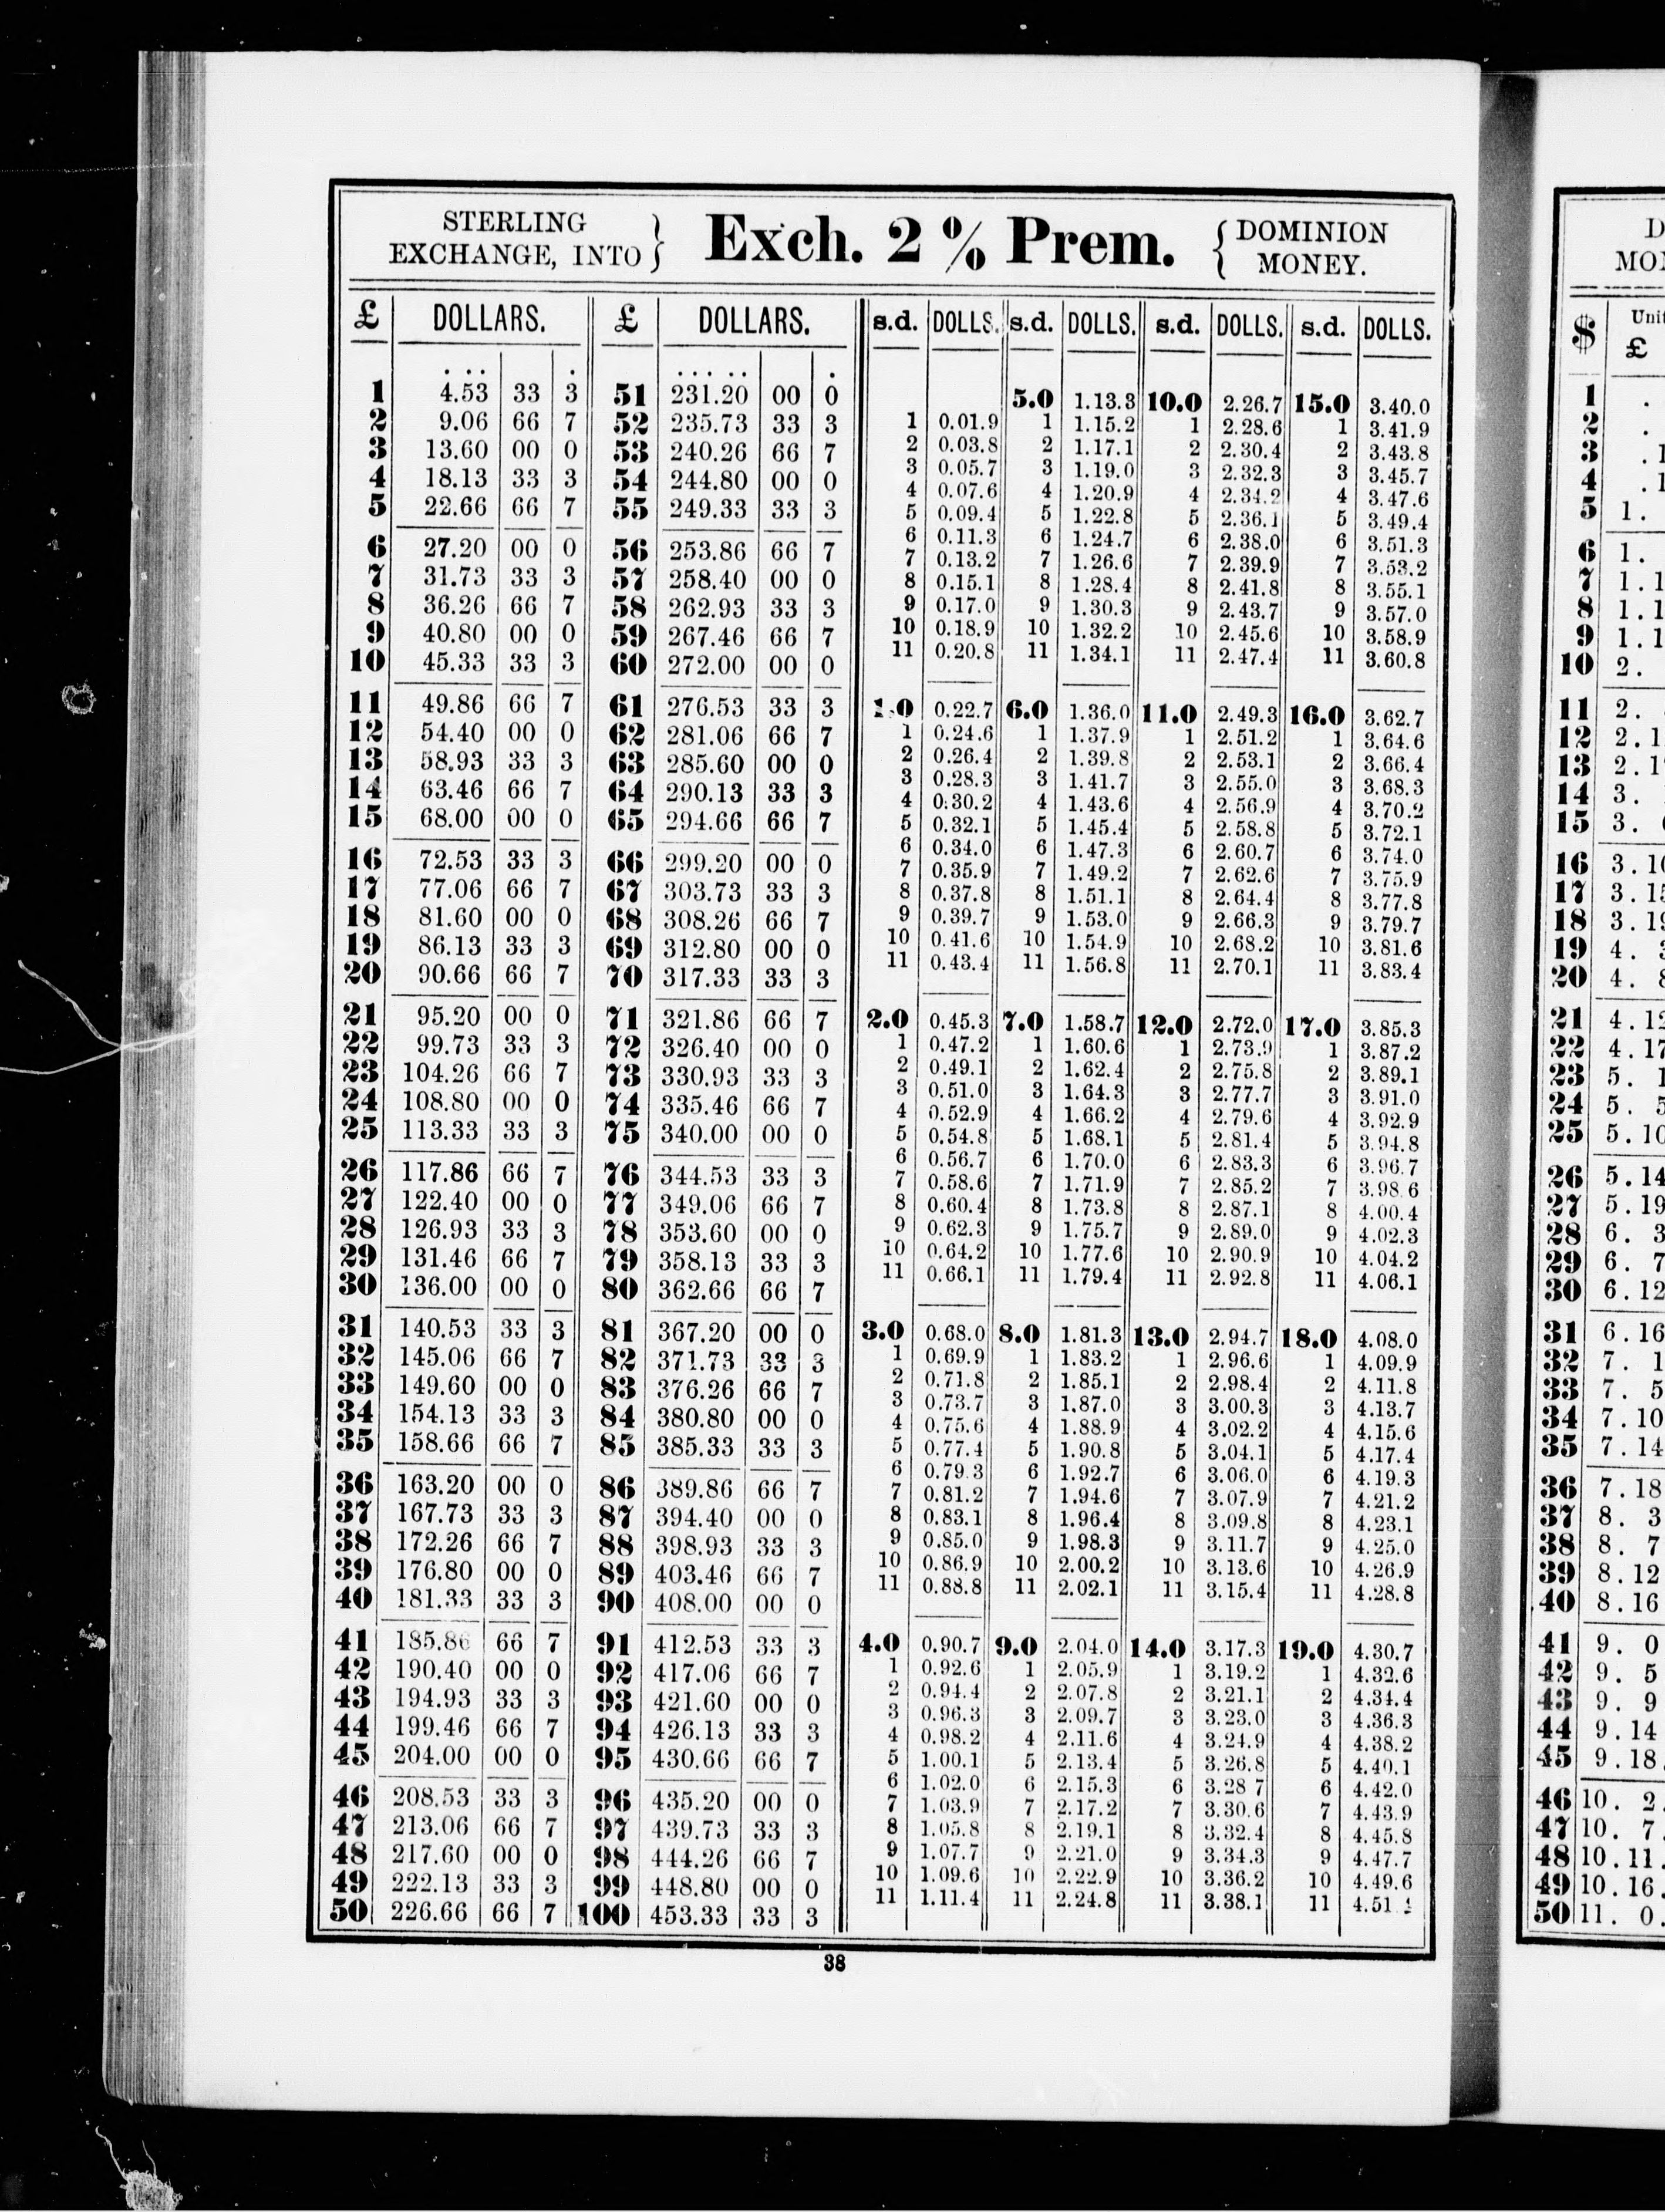 STERLING EXCHANGE, INTO } Exch. 2 % Prem. { DOMINION MONEY.
£ DOLLARS. £ DOLLARS.
1 4.53 33 3 51 231.20 00 0
2 9.06 66 7 52 235.73 33 3
3 13.60 00 0 53 240.26 66 7
4 18.13 33 3 54 244.80 00 0
5 22.66 66 7 55 249.33 33 3
6 27.20 00 0 56 253.86 66 7
7 31.73 33 3 57 258.40 00 0
8 36.26 66 7 58 262.93 33 3
9 40.80 00 0 59 267.46 66 7
10 45.33 33 3 60 272.00 00 0
11 49.86 66 7 61 276.53 33 3
12 54.40 00 0 62 281.06 66 7
13 58.93 33 3 63 285.60 00 0
14 63.46 66 7 64 290.13 33 3
15 68.00 00 0 65 294.66 66 7
16 72.53 33 3 66 299.20 00 0
17 77.06 66 7 67 303.73 33 3
18 81.60 00 0 68 308.26 66 7
19 86.13 33 3 69 312.80 00 0
20 90.66 66 7 70 317.33 33 3
21 95.20 00 0 71 321.86 66 7
22 99.73 33 3 72 326.40 00 0
23 104.26 66 7 73 330.93 33 3
24 108.80 00 0 74 335.46 66 7
25 113.33 33 3 75 340.00 00 0
26 117.86 66 7 76 344.53 33 3
27 122.40 00 0 77 349.06 66 7
28 126.93 33 3 78 353.60 00 0
29 131.46 66 7 79 358.13 33 3
30 136.00 00 0 80 362.66 66 7
31 140.53 33 3 81 367.20 00 0
32 145.06 66 7 82 371.73 33 3
33 149.60 00 0 83 376.26 66 7
34 154.13 33 3 84 380.80 00 0
35 158.66 66 7 85 385.33 33 3
36 163.20 00 0 86 389.86 66 7
37 167.73 33 3 87 394.40 00 0
38 172.26 66 7 88 398.93 33 3
39 176.80 00 0 89 403.46 66 7
40 181.33 33 3 90 408.00 00 0
41 185.86 66 7 91 412.53 33 3
42 190.40 00 0 92 417.06 66 7
43 194.93 33 3 93 421.60 00 0
44 199.46 66 7 94 426.13 33 3
45 204.00 00 0 95 430.66 66 7
46 208.53 33 3 96 435.20 00 0
47 213.06 66 7 97 439.73 33 3
48 217.60 00 0 98 444.26 66 7
49 222.13 33 3 99 448.80 00 0
50 226.66 66 7 100 453.33 33 3
s.d. DOLLS. s.d. DOLLS. s.d. DOLLS. s.d. DOLLS.
5.0 1.13.3 10.0 2.26.7 15.0 3.40.0
1 0.01.9 1 1.15.2 1 2.28.6 1 3.41.9
2 0.03.8 2 1.17.1 2 2.30.4 2 3.43.8
3 0.05.7 3 1.19.0 3 2.32.3 3 3.45.7
4 0.07.6 4 1.20.9 4 2.34.2 4 3.47.6
5 0.09.4 5 1.22.8 5 2.36.1 5 3.49.4
6 0.11.3 6 1.24.7 6 2.38.0 6 3.51.3
7 0.13.2 7 1.26.6 7 2.39.9 7 3.53.2
8 0.15.1 8 1.28.4 8 2.41.8 8 3.55.1
9 0.17.0 9 1.30.3 9 2.43.7 9 3.57.0
10 0.18.9 10 1.32.2 10 2.45.6 10 3.58.9
11 0.20.8 11 1.34.1 11 2.47.4 11 3.60.8
1.0 0.22.7 6.0 1.36.0 11.0 2.49.3 16.0 3.62.7
1 0.24.6 1 1.37.9 1 2.51.2 1 3.64.6
2 0.26.4 2 1.39.8 2 2.53.1 2 3.66.4
3 0.28.3 3 1.41.7 3 2.55.0 3 3.68.3
4 0.30.2 4 1.43.6 4 2.56.9 4 3.70.2
5 0.32.1 5 1.45.4 5 2.58.8 5 3.72.1
6 0.34.0 6 1.47.3 6 2.60.7 6 3.74.0
7 0.35.9 7 1.49.2 7 2.62.6 7 3.75.9
8 0.37.8 8 1.51.1 8 2.64.4 8 3.77.8
9 0.39.7 9 1.53.0 9 2.66.3 9 3.79.7
10 0.41.6 10 1.54.9 10 2.68.2 10 3.81.6
11 0.43.4 11 1.56.8 11 2.70.1 11 3.83.4
2.0 0.45.3 7.0 1.58.7 12.0 2.72.0 17.0 3.85.3
1 0.47.2 1 1.60.6 1 2.73.9 1 3.87.2
2 0.49.1 2 1.62.4 2 2.75.8 2 3.89.1
3 0.51.0 3 1.64.3 3 2.77.7 3 3.91.0
4 0.52.9 4 1.66.2 4 2.79.6 4 3.92.9
5 0.54.8 5 1.68.1 5 2.81.4 5 3.94.8
6 0.56.7 6 1.70.0 6 2.83.3 6 3.96.7
7 0.58.6 7 1.71.9 7 2.85.2 7 3.98.6
8 0.60.4 8 1.73.8 8 2.87.1 8 4.00.4
9 0.62.3 9 1.75.7 9 2.89.0 9 4.02.3
10 0.64.2 10 1.77.6 10 2.90.9 10 4.04.2
11 0.66.1 11 1.79.4 11 2.92.8 11 4.06.1
3.0 0.68.0 8.0 1.81.3 13.0 2.94.7 18.0 4.08.0
1 0.69.9 1 1.83.2 1 2.96.6 1 4.09.9
2 0.71.8 2 1.85.1 2 2.98.4 2 4.11.8
3 0.73.7 3 1.87.0 3 3.00.3 3 4.13.7
4 0.75.6 4 1.88.9 4 3.02.2 4 4.15.6
5 0.77.4 5 1.90.8 5 3.04.1 5 4.17.4
6 0.79.3 6 1.92.7 6 3.06.0 6 4.19.3
7 0.81.2 7 1.94.6 7 3.07.9 7 4.21.2
8 0.83.1 8 1.96.4 8 3.09.8 8 4.23.1
9 0.85.0 9 1.98.3 9 3.11.7 9 4.25.0
10 0.86.9 10 2.00.2 10 3.13.6 10 4.26.9
11 0.88.8 11 2.02.1 11 3.15.4 11 4.28.8
4.0 0.90.7 9.0 2.04.0 14.0 3.17.3 19.0 4.30.7
1 0.92.6 1 2.05.9 1 3.19.2 1 4.32.6
2 0.94.4 2 2.07.8 2 3.21.1 2 4.34.4
3 0.96.3 3 2.09.7 3 3.23.0 3 4.36.3
4 0.98.2 4 2.11.6 4 3.24.9 4 4.38.2
5 1.00.1 5 2.13.4 5 3.26.8 5 4.40.1
6 1.02.0 6 2.15.3 6 3.28 7 6 4.42.0
7 1.03.9 7 2.17.2 7 3.30.6 7 4.43.9
8 1.05.8 8 2.19.1 8 3.32.4 8 4.45.8
9 1.07.7 9 2.21.0 9 3.34.3 9 4.47.7
10 1.09.6 10 2.22.9 10 3.36.2 10 4.49.6
11 1.11.4 11 2.24.8 11 3.38.1 11 4.51
38
$ £
1
2
3
4
5 1.
6 1.
7 1.1
8 1.1
9 1.1
10 2.
11 2.
12 2.1
13 2.1
14 3.
15 3.
16 3.10
17 3.15
18 3.19
19 4. 3
20 4. 8
21 4.12
22 4.17
23 5. 1
24 5. 5
25 5.10
26 5.14
27 5.19
28 6. 3
29 6. 7
30 6.12
31 6.16
32 7. 1
33 7. 5
34 7.10
35 7.14
36 7.18
37 8. 3
38 8. 7
39 8.12
40 8.16
41 9. 0
42 9. 5
43 9. 9
44 9.14
45 9.18.
46 10. 2.
47 10. 7.
48 10.11.
49 10.16.
50 11. 0.